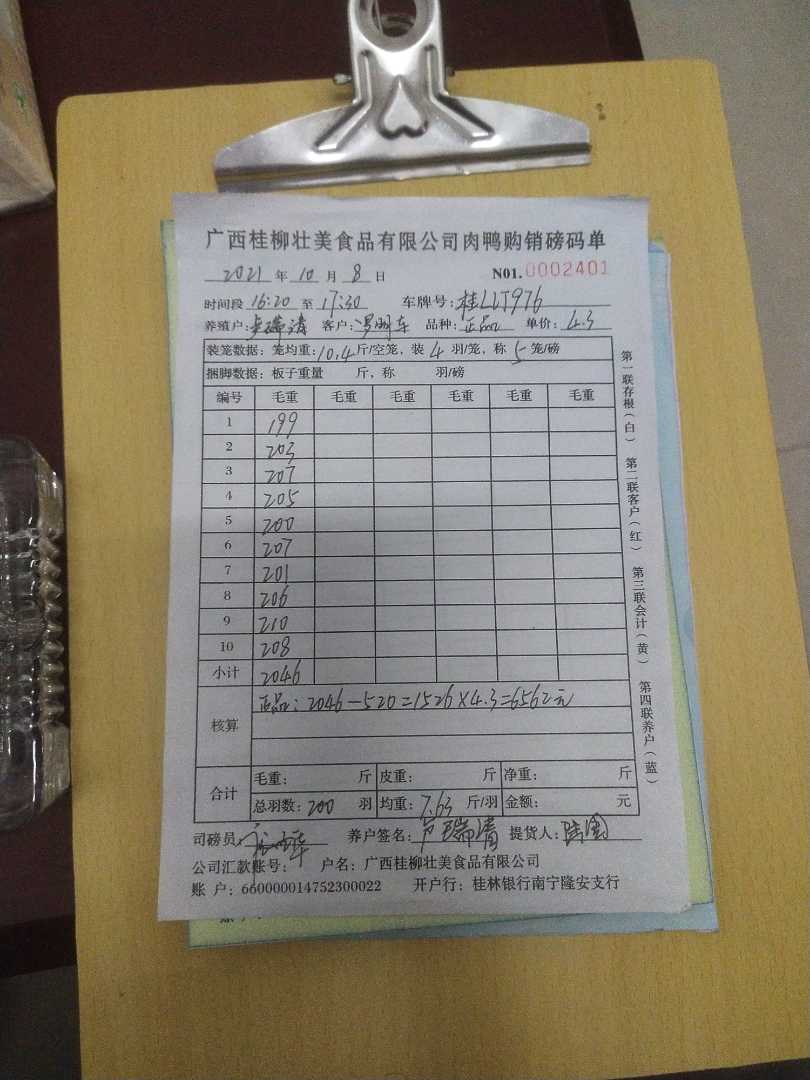 广西桂柳壮美食品有限公司肉鸭购销磅码单
2021 年 10 月 8 日 N01.0002401
时间段 16:20 至 17:30 车牌号:桂LLT976
养殖户:卢瑞清 客户: 品种:正品 单价:4.3
装笼数据:笼均重:10.4斤/空笼,装 4 羽/笼,称 5 笼/磅
捆脚数据:板子重量 斤,称 羽/磅
编号 毛重 毛重 毛重 毛重 毛重 毛重
1 199
2 203
3 207
4 205
5 200
6 207
7 201
8 206
9 210
10 208
小计 2046
核算 正品:2046-520=1526×4.3=6562元
合计 毛重: 斤 皮重: 斤 净重: 斤
总羽数:200 羽 均重:7.63 斤/羽 金额: 元
司磅员: 养户签名:卢瑞清 提货人:
公司汇款账号: 户名:广西桂柳壮美食品有限公司
账 户:660000014752300022 开户行:桂林银行南宁隆安支行
第一联存根(白) 第二联客户(红) 第三联会计(黄) 第四联养户(蓝)